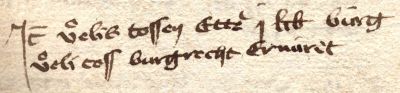 It vͦelis tossen Ettē j lib burg
vͦeli toss burgrecht Ernüret